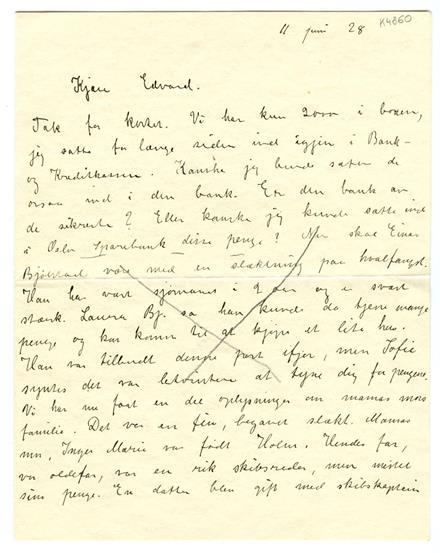 11 juni 28 K4860
Kjære Edvard.
Tak for kortet. Vi har kun 2000 i boxen,
jeg satte for længe siden ind igjen i Bank-
og Kreditkassen. Kanske jeg burde satte de
ogsaa ind i den bank. Er den bank av
de sikreste? Eller kanske jeg kunde satte ind
i Oslo Sparebank disse penge? Nu skal Einar
Bjølstad være med en slektning paa hvalfangst.
Han har vært sjømand i 2 aar og er svart
stærk. Laura Bj. sa han kunde da tjene mange
penge og kan komme til at kjøpe et lite hus.
Han var tilbudt denne post ifjor, men Sofie
syntes det var letvintere at tigge dig for pengene.
Vi har nu faat en del oplysninger om mamas mors
familie. Det var en fin, begavet slekt. Mamas
mor, Inger Marie var født Holm. Hendes far,
vor oldefar, var en rik skibsreder, men mistet
sine penge. En datter blev gift med skibskaptein